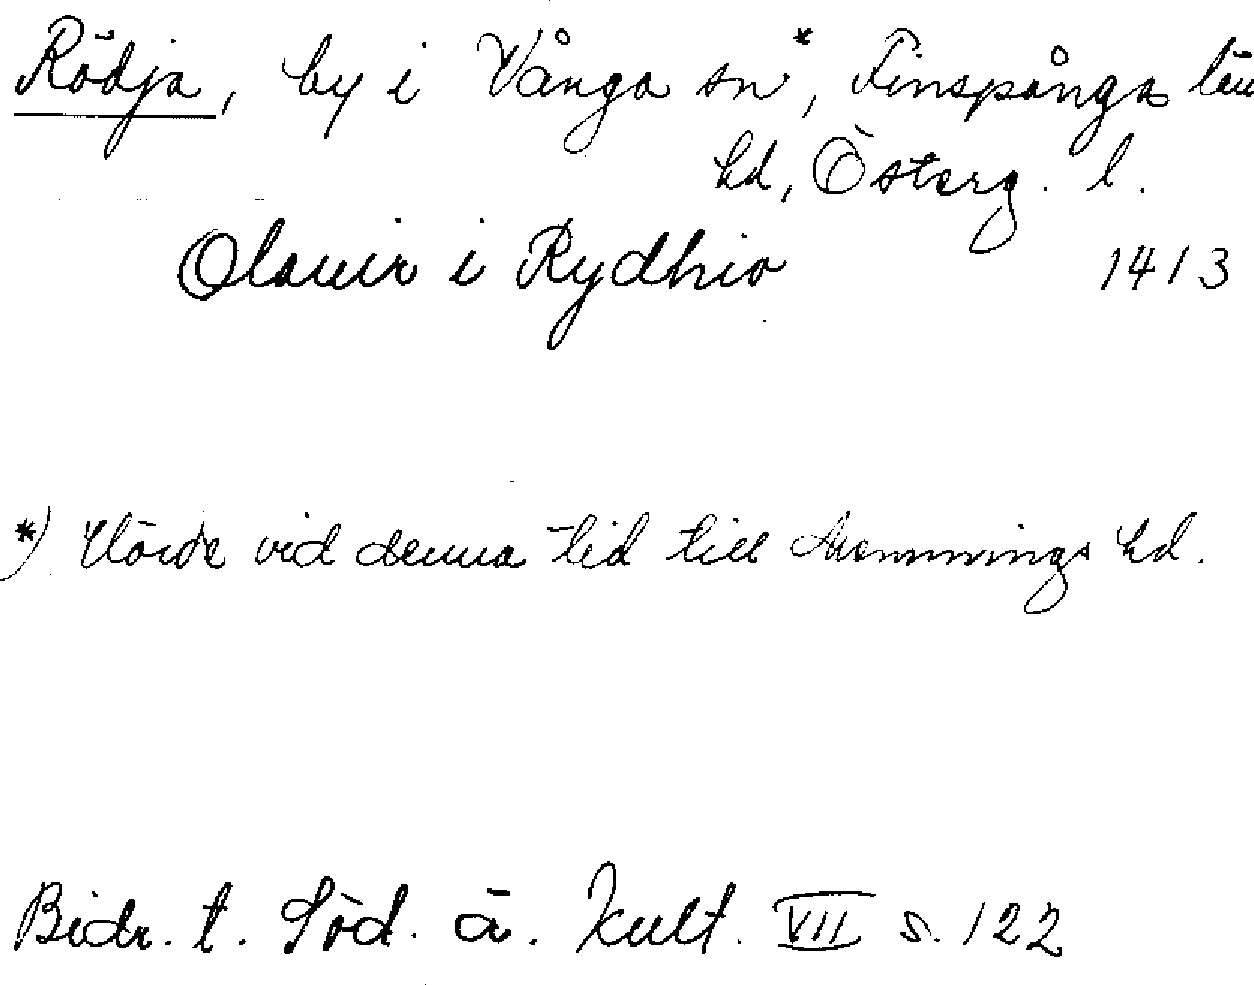 Rödja, by i Vånga sn*, Finspånga län
hd, Österg. l.
Olauir i Rydhio 1413
*) Hörde vid denna tid till Memmings hd.
Bidr. t. Söd. ä. Kult. VII s. 122